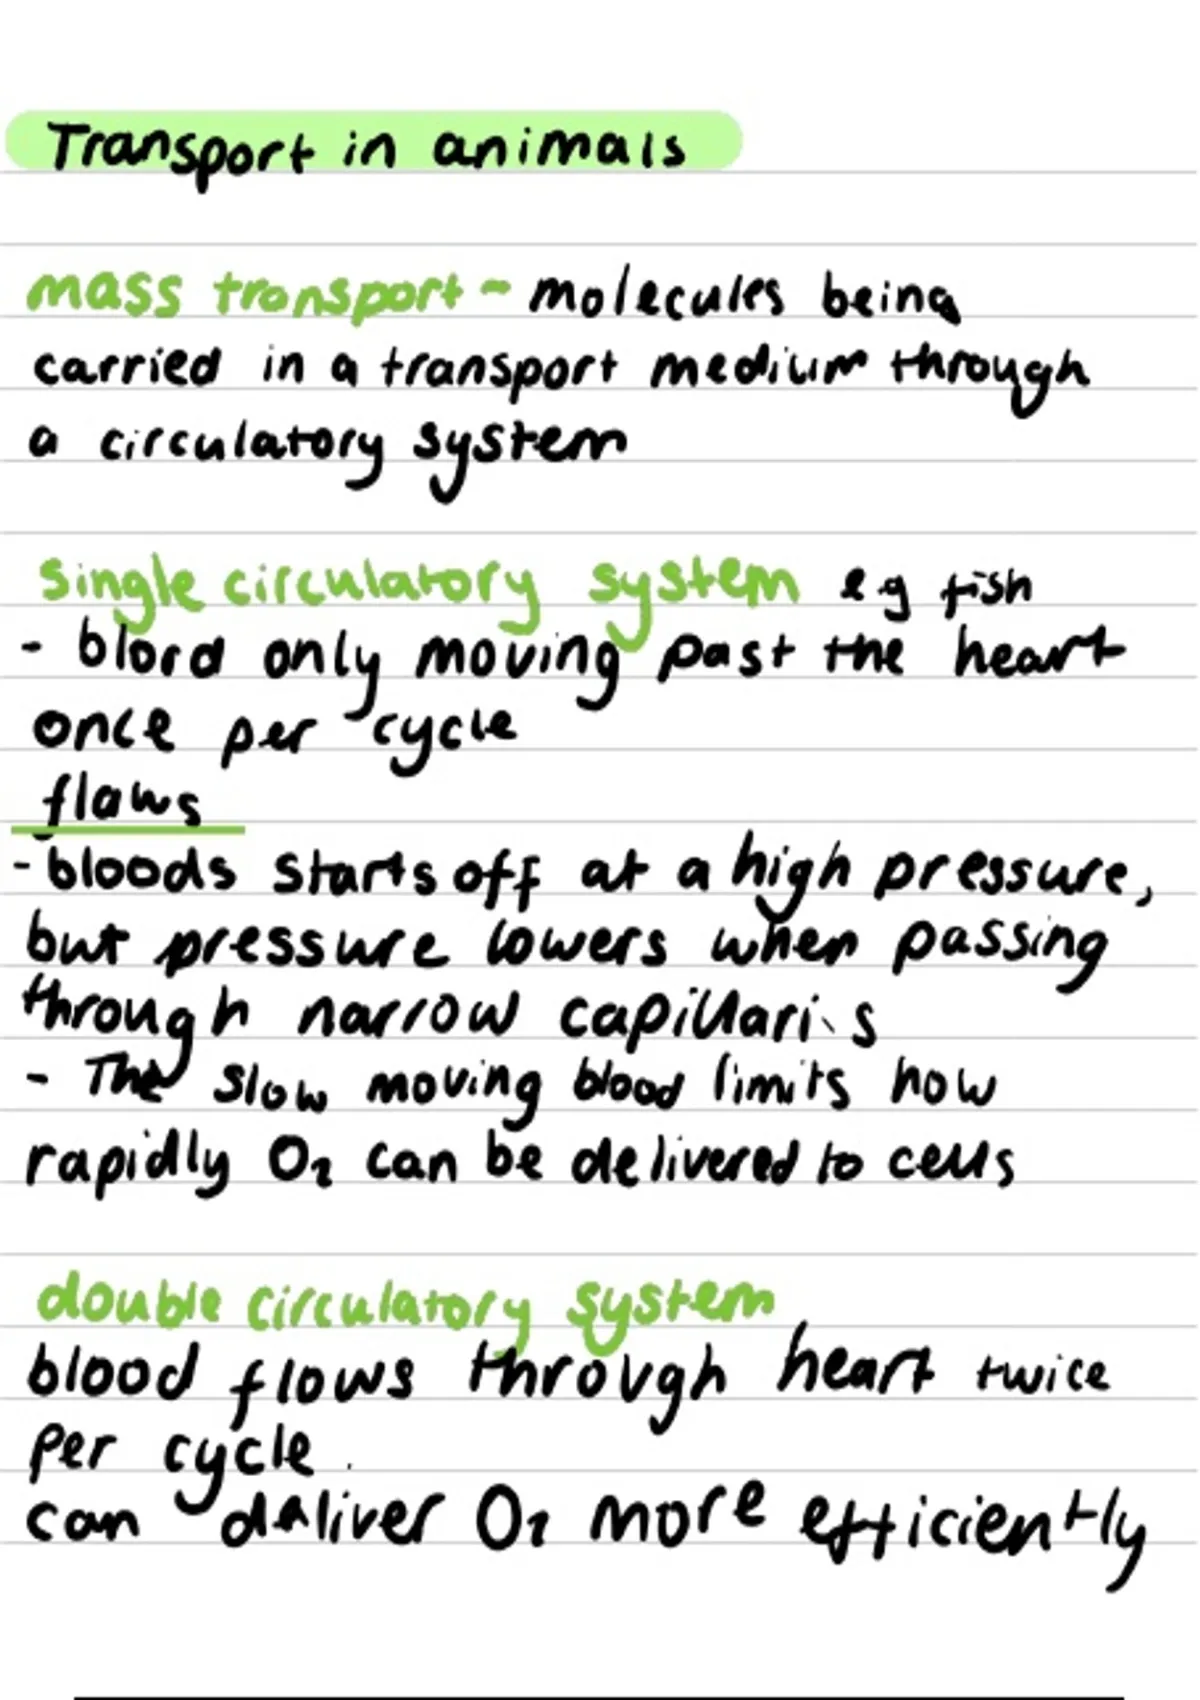 Transport in animals
mass transport - molecules being
carried in a transport medium through
a circulatory system
single circulatory system eg fish
- blood only moving past the heart
once per cycle
flaws
- bloods starts off at a high pressure,
but pressure lowers when passing
through narrow capillaris
- The slow moving blood limits how
rapidly O₂ can be delivered to cells
double circulatory system
blood flows through heart twice
per cycle.
can deliver O₂ more efficiently